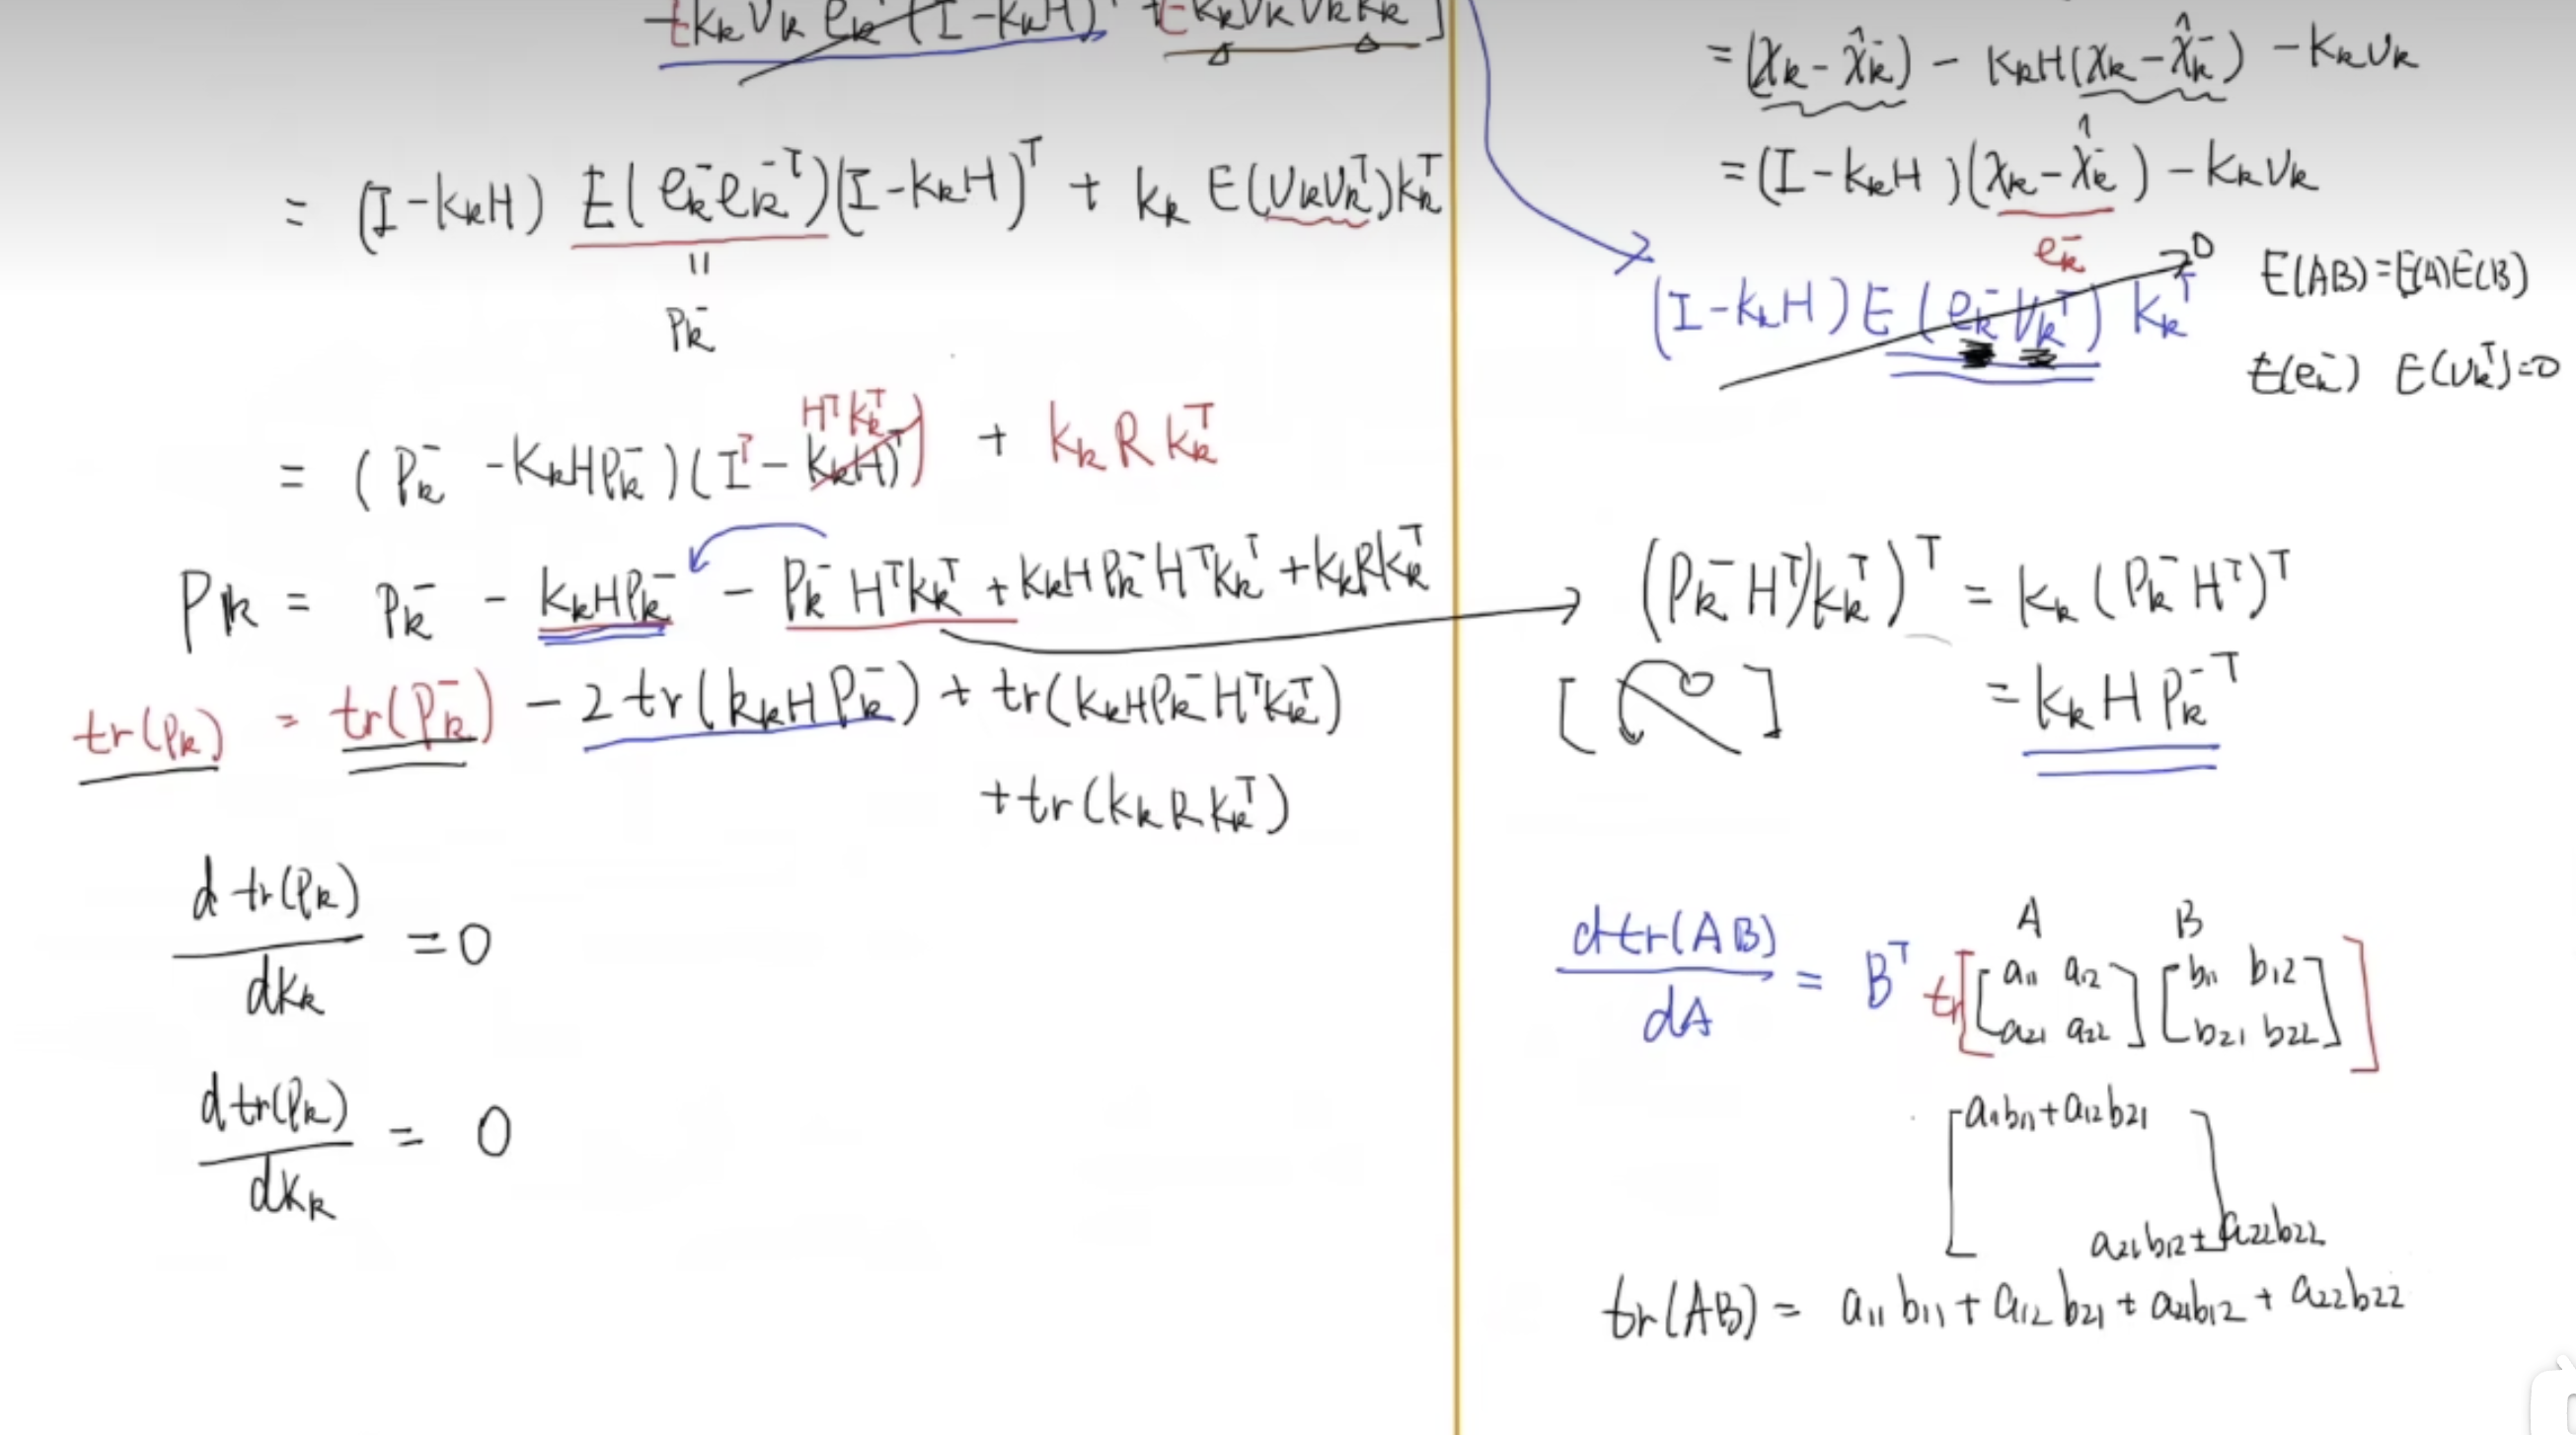 -E K_k V_k e_k^- (I-K_kH)^T + E K_k V_k V_k K_k ]
= (I-K_kH) E(e_k^- e_k^{-T})(I-K_kH)^T + K_k E(V_kV_k^T)K_k^T
||
P_k^-
= (P_k^- - K_kHP_k^-)(I^T - K_kH)^T H^T K_k^T) + K_k R K_k^T
P_k = P_k^- - K_kHP_k^- - P_k^- H^TK_k^T + K_kHP_k^-H^TK_k^T + K_kRK_k^T
tr(P_k) = tr(P_k^-) - 2tr(K_kHP_k^-) + tr(K_kHP_k^-H^TK_k^T)
+tr(K_kRK_k^T)
d tr(P_k)
=0
dK_k
d tr(P_k)
= 0
dK_k
= (X_k - X̂_k^-) - K_kH(X_k - X̂_k^-) - K_kV_k
= (I-K_kH)(X_k - X̂_k^-) - K_kV_k
e_k^-
0
(I-K_kH)E(e_k^- V_k^T) K_k^T
E(AB)=E(A)E(B)
E(e_k^-) E(V_k^T)=0
(P_k^-H^T)K_k^T)^T = K_k(P_k^-H^T)^T
[ ]
= K_k H P_k^{-T}
A B
dtr(AB)
dA
= B^T tr[[a11 a12
a21 a22] [b11 b12
b21 b22]]
[a11b11+a12b21
a21b12+a22b22]
tr(AB) = a11 b11 + a12 b21 + a21b12 + a22b22